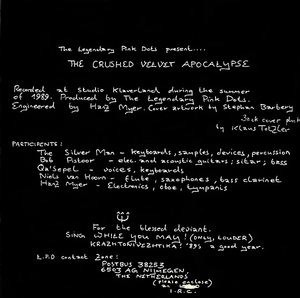 The Legendary Pink Dots present....
THE CRUSHED VELVET APOCALYPSE
Recorded at Studio Klaverland during the summer
of 1989. Produced by The Legendary Pink Dots.
Engineered by Hanz Myer. Cover artwork by Stephan Barbery
Back cover photo
by Klaus Totzler
PARTICIPENTS:
The Silver Man - keyboards, samples, devices, percussion
Bob Pistoor - elec. and acoustic guitars; sitar; bass
Qa'Sepel - voices, keyboards
Niels van Hoorn - flute, saxophones, bass clarinet
Hanz Myer - Electronics, oboe, tympanis
For the blessed deviant.
SING WHILE YOU MAY! (ONLY, LOUDER)
a good year.
L.P.D contact Zone:
POSTBUS 38253
6503 AG NIJMEGEN,
THE NETHERLANDS
(please enclose
an
I.R.C.